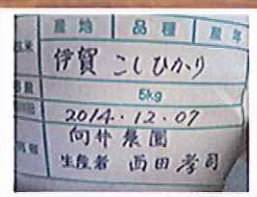 産地 品種 産年
伊賀 こしひかり
5kg
2014.12.07
向井農園
生産者 西田孝司